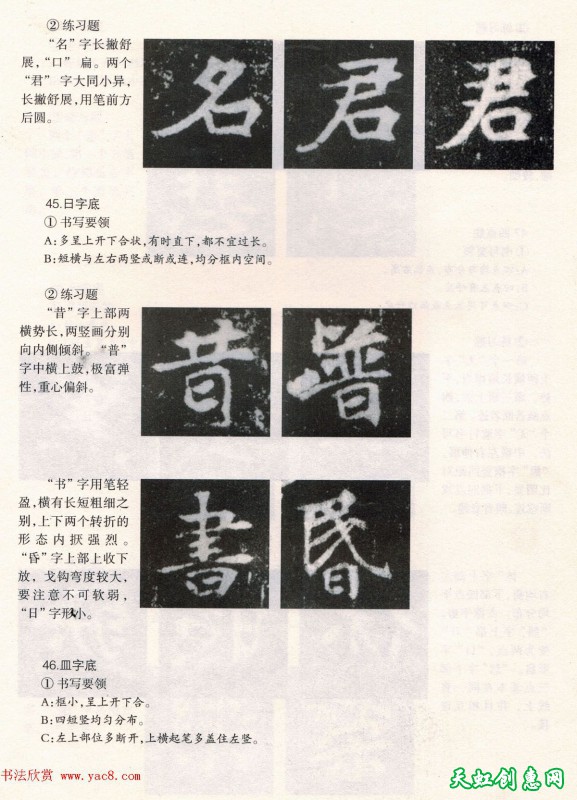 ②练习题
“名”字长撇舒
展，“口” 扁。两个
“君” 字大同小异，
长撇舒展，用笔前方
后圆。
名 君 君
45.日字底
①书写要领
A:多呈上开下合状,有时直下,都不宜过长。
B:短横与左右两竖或断或连,均分框内空间。
②练习题
“昔”字上部两
横势长，两竖画分别
向内侧倾斜。“普”
字中横上鼓，极富弹
性，重心偏斜。
昔 普
“书”字用笔轻
盈，横有长短粗细之
别，上下两个转折的
形态内抧强烈。
“昏”字上部上收下
放，戈钩弯度较大，
要注意不可软弱，
“日”字形小。
書 昬
46.皿字底
①书写要领
A:框小,呈上开下合。
B:四短竖均匀分布。
C:左上部位多断开,上横起笔多盖住左竖。
书法欣赏 www.yac8.com
天虹创意网